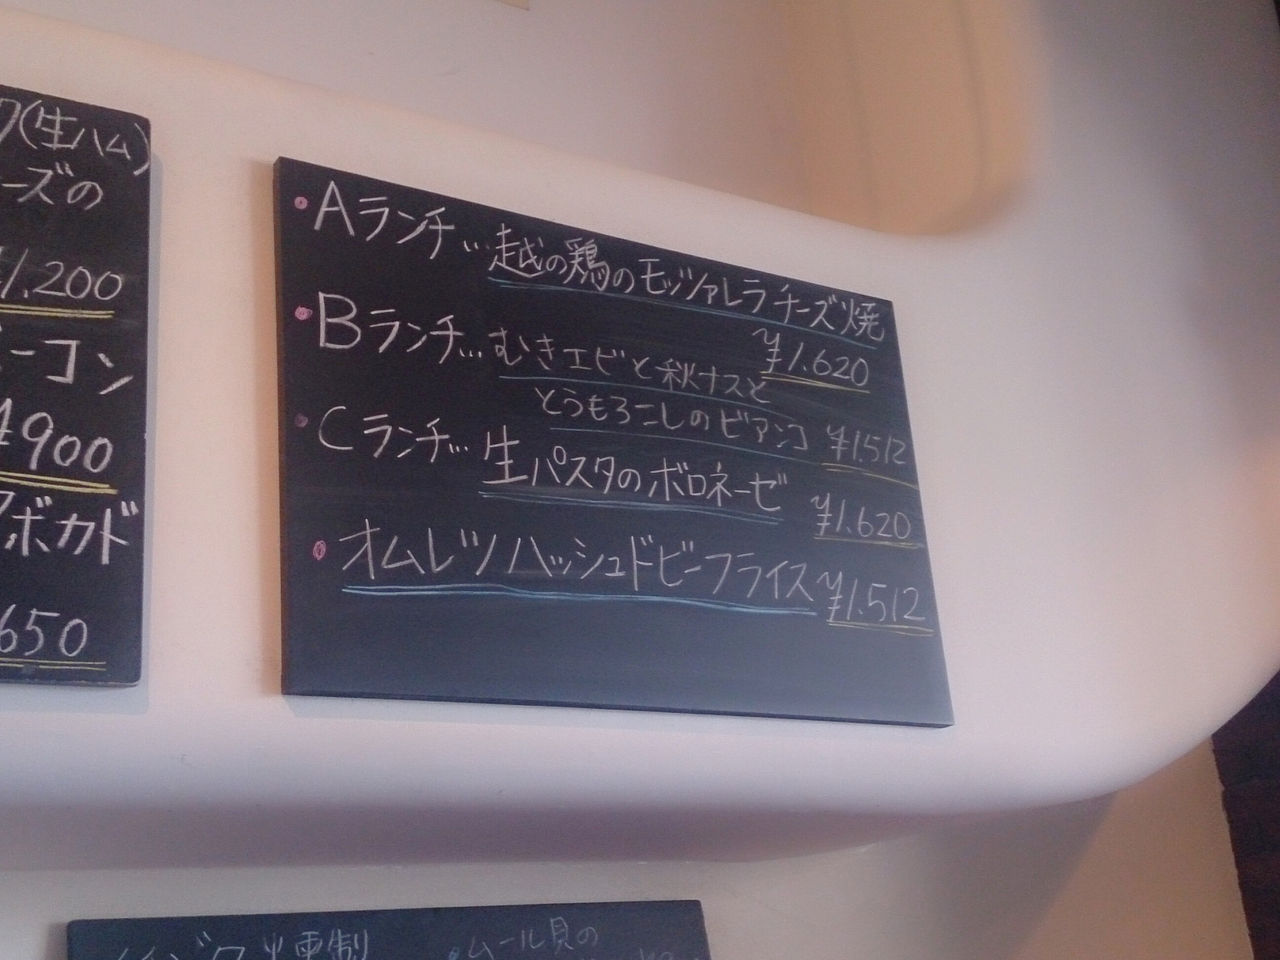 (生ハム)
ーズの
¥1.200
ーコン
¥900
アボカド
650
・Aランチ…越の鶏のモッツァレラチーズ焼
¥1.620
・Bランチ…むきエビと秋ナスと
とうもろこしのビアンコ ¥1.512
・Cランチ…生パスタのボロネーゼ
¥1.620
・オムレツハッシュドビーフライス ¥1.512
燻製
・ムール貝の